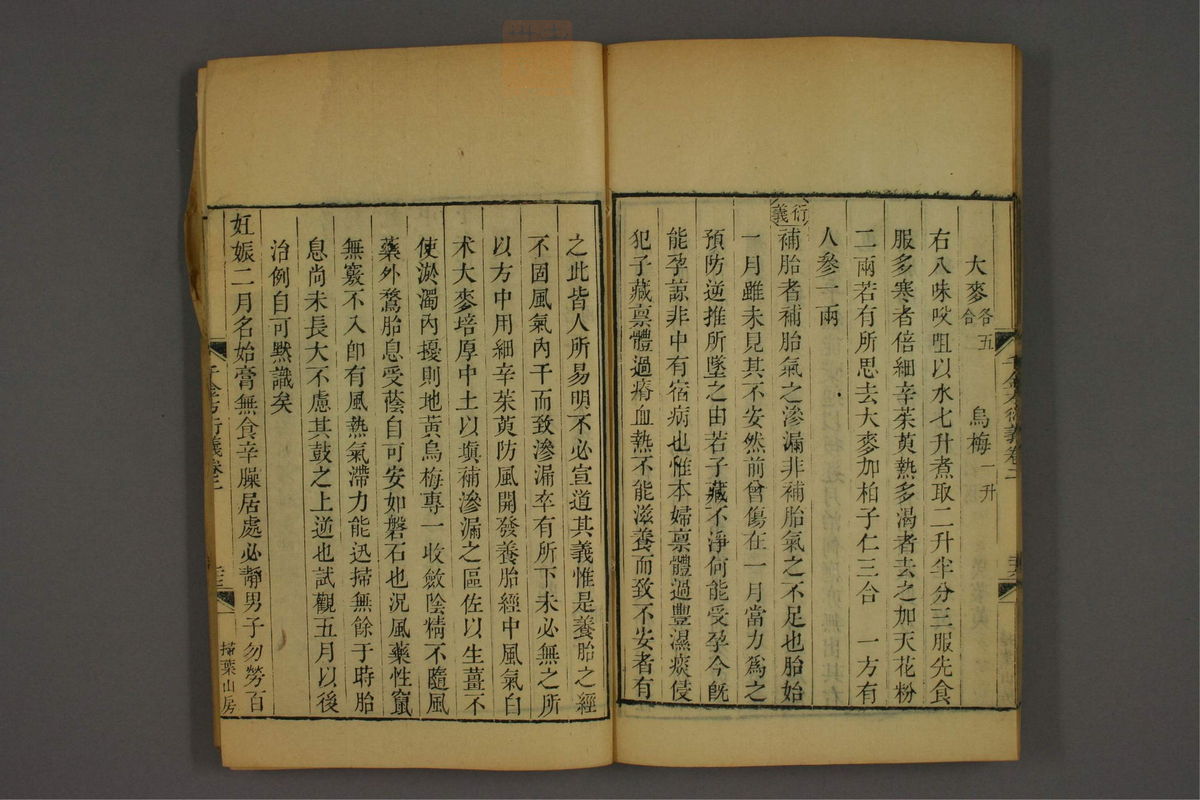 大麥各五合 烏梅一升
右八味㕮咀以水七升煮取二升半分三服先食
服多寒者倍細辛茱萸熱多渴者去之加天花粉
二兩若有所思去大麥加柏子仁三合 一方有
人參一兩
衍義
補胎者補胎氣之滲漏非補胎氣之不足也胎始
一月雖未見其不安然前曾傷在一月當力為之
預防逆推所墜之由若子藏不淨何能受孕今既
能孕諒非中有宿病也惟本婦禀體過豐濕痰侵
犯子藏禀體過瘠血熱不能滋養而致不安者有
千金方衍義卷二
之此皆人所易明不必宣道其義惟是養胎之經
不固風氣內干而致滲漏卒有所下未必無之所
以方中用細辛茱萸防風開發養胎經中風氣白
朮大麥培厚中土以塡補滲漏之區佐以生薑不
使淤濁內擾則地黃烏梅專一收斂陰精不隨風
藥外騖胎息受蔭自可安如磐石也況風藥性竄
無竅不入卽有風熱氣滯力能迅掃無餘于時胎
息尚未長大不慮其鼓之上逆也試觀五月以後
治例自可默識矣
妊娠二月名始膏無食辛臊居處必靜男子勿勞百
千金方衍義卷二
掃葉山房